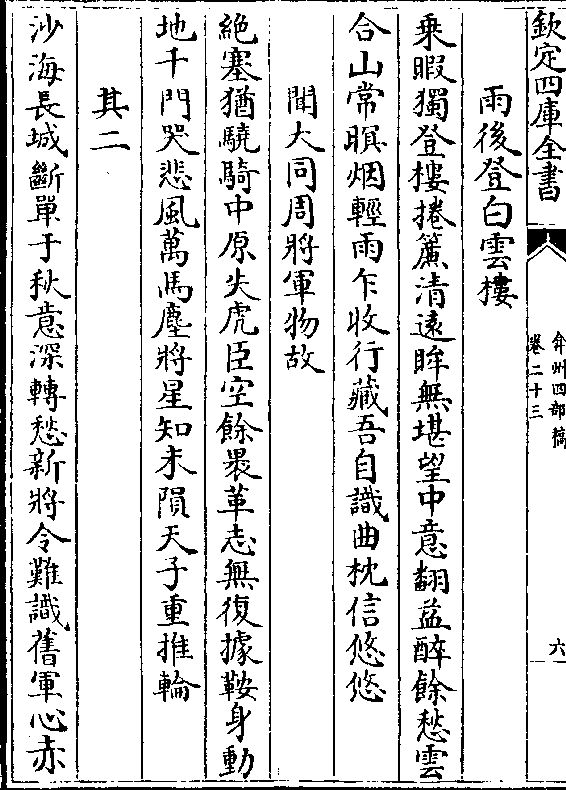 欽定四庫全書
弇州四部稿
卷二十三
六
雨後登白雲樓
乗暇獨登樓捲簾清遠眸無堪望中意翻益醉餘愁雲
合山常暝烟輕雨乍收行藏吾自識曲枕信悠悠
聞大同周將軍物故
絶塞猶驍騎中原失虎臣空餘裹革志無復據鞍身動
地千門哭悲風萬馬塵將星知未隕天子重推輪
其二
沙海長城斷單于秋意深轉愁新將令難識舊軍心赤